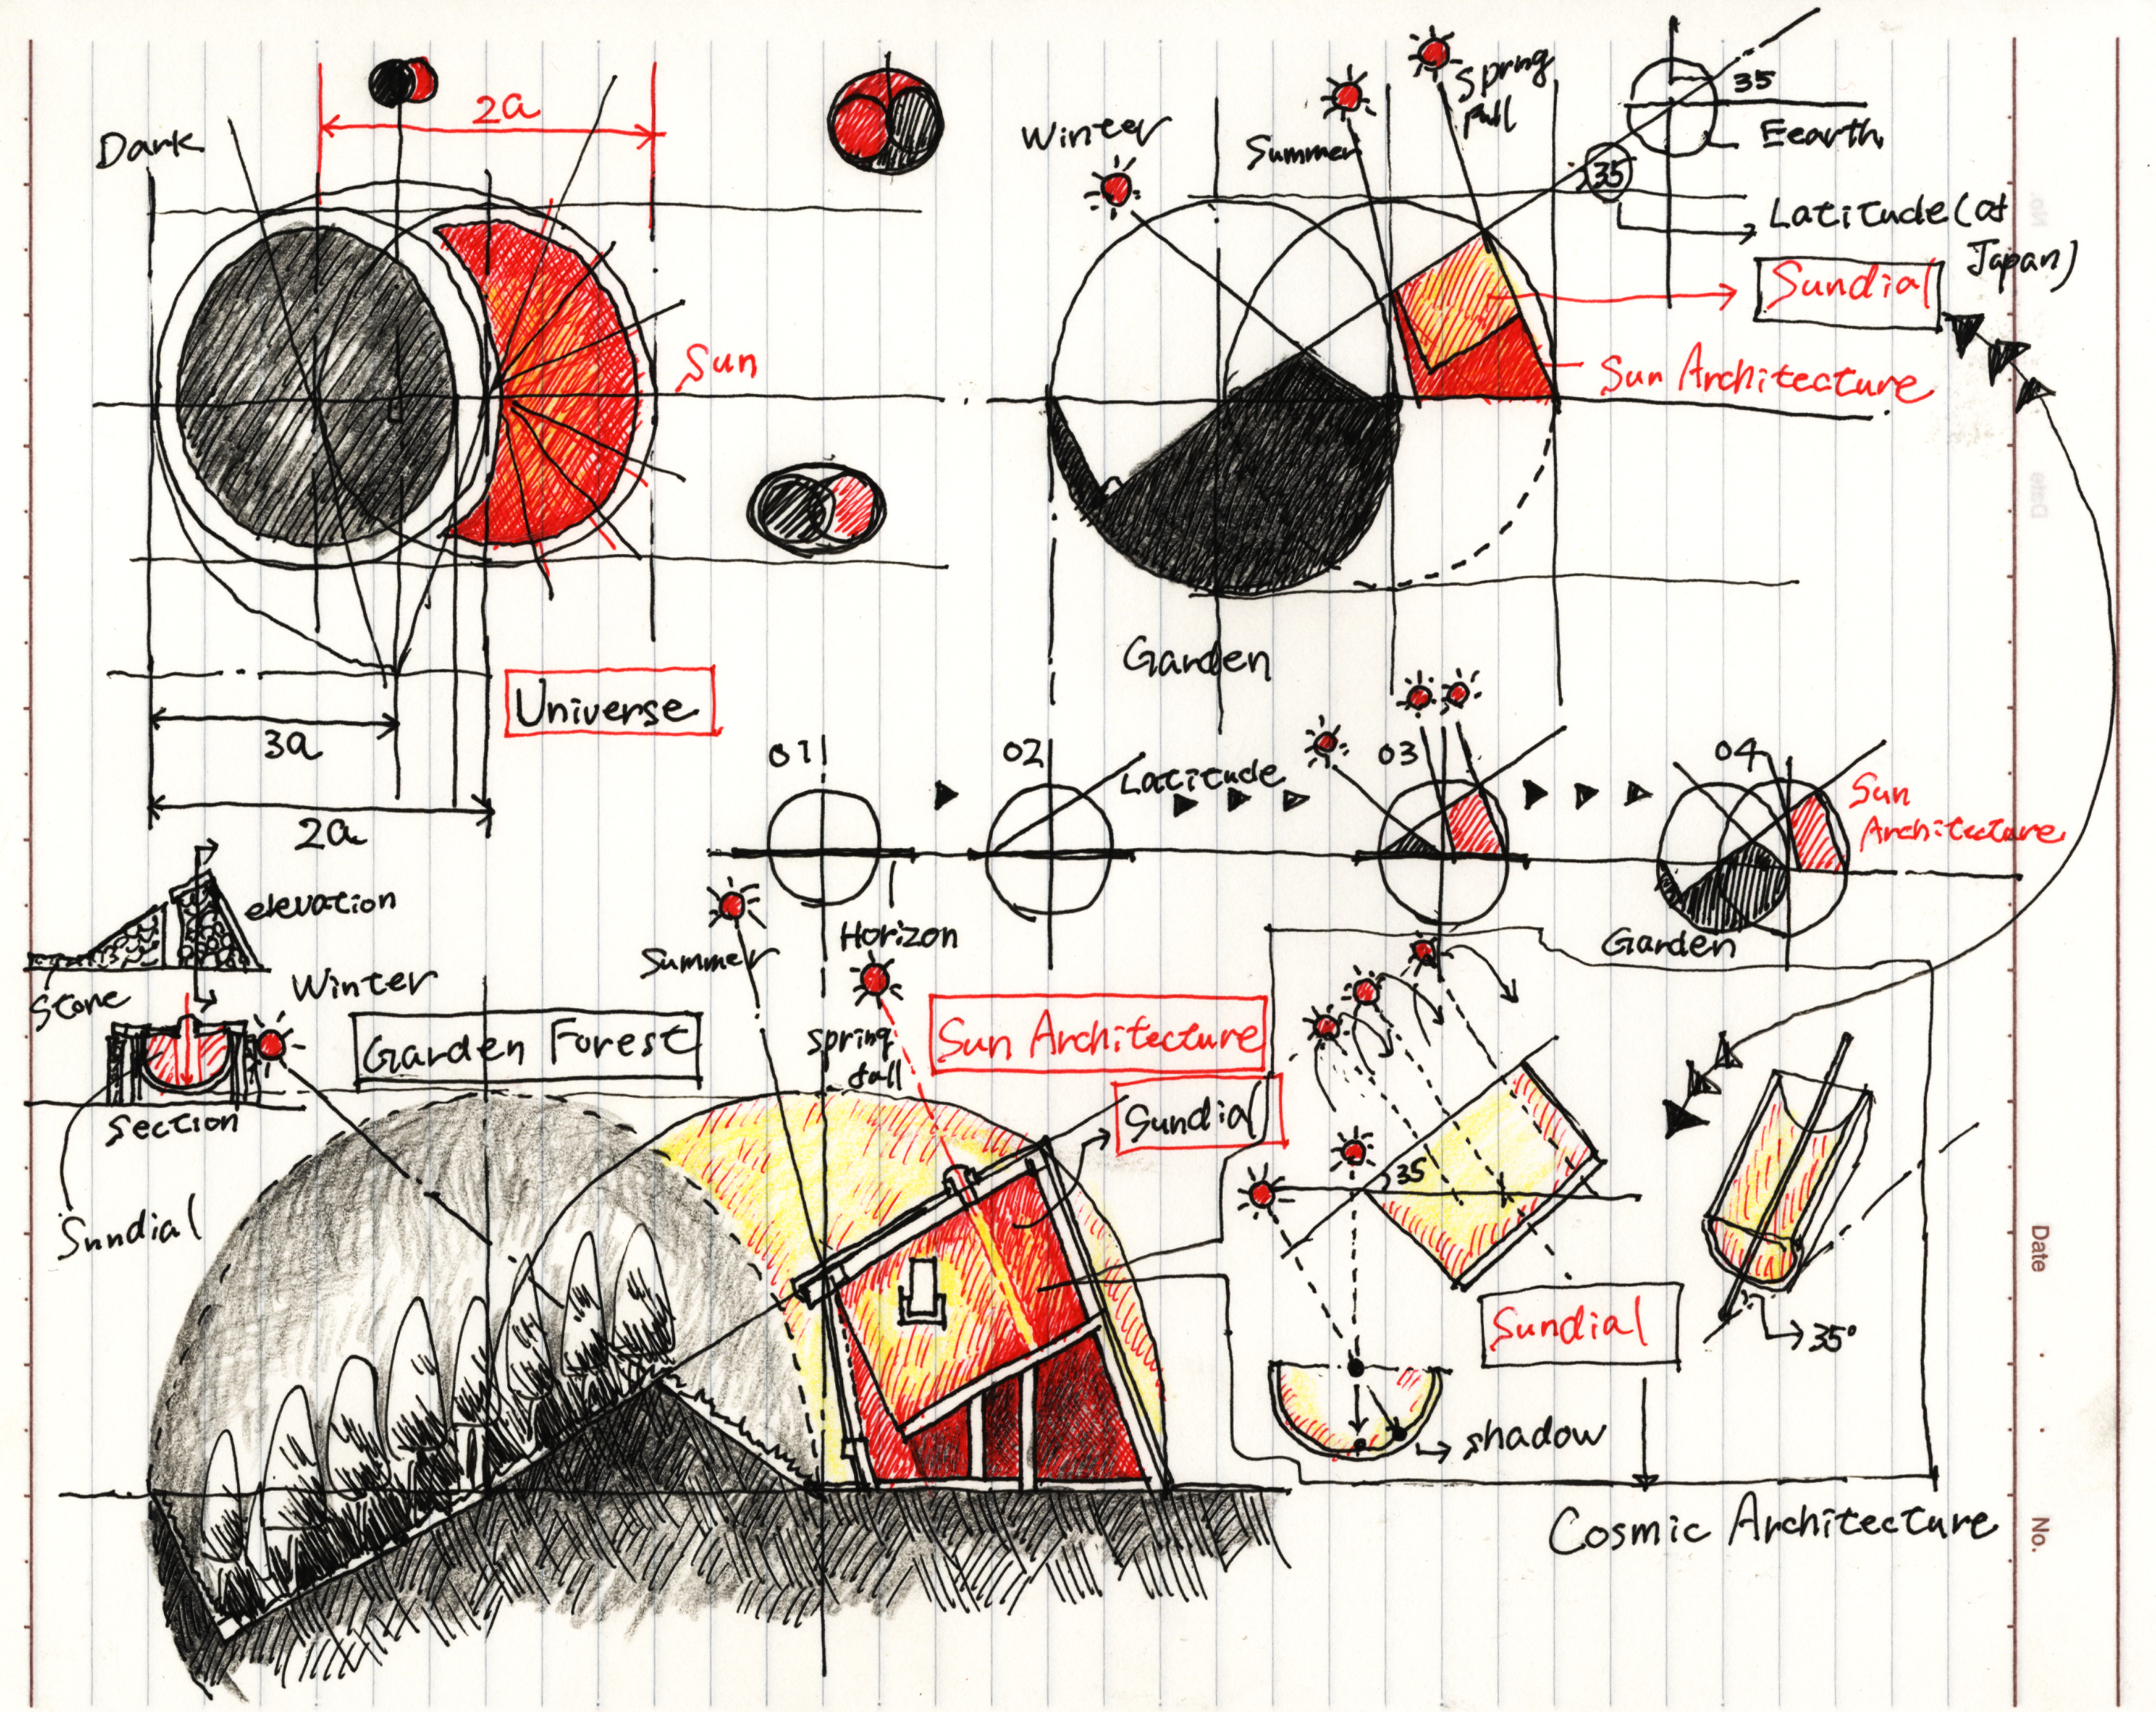 Dark
2a
Sun
Universe
3a
2a
Winter
Summer
Spring
full
35
Eearth
35
Latitude (at
Japan)
Sundial
Sun Architecture
Garden
01
02
Latitude
03
04
Sun
Architecture
Horizon
Garden
elevation
Stone
section
Sundial
Winter
Garden Forest
Summer
spring
fall
Sun Architecture
Sundial
35
Sundial
35°
shadow
Cosmic Architecture
No.
Date
Date
No.